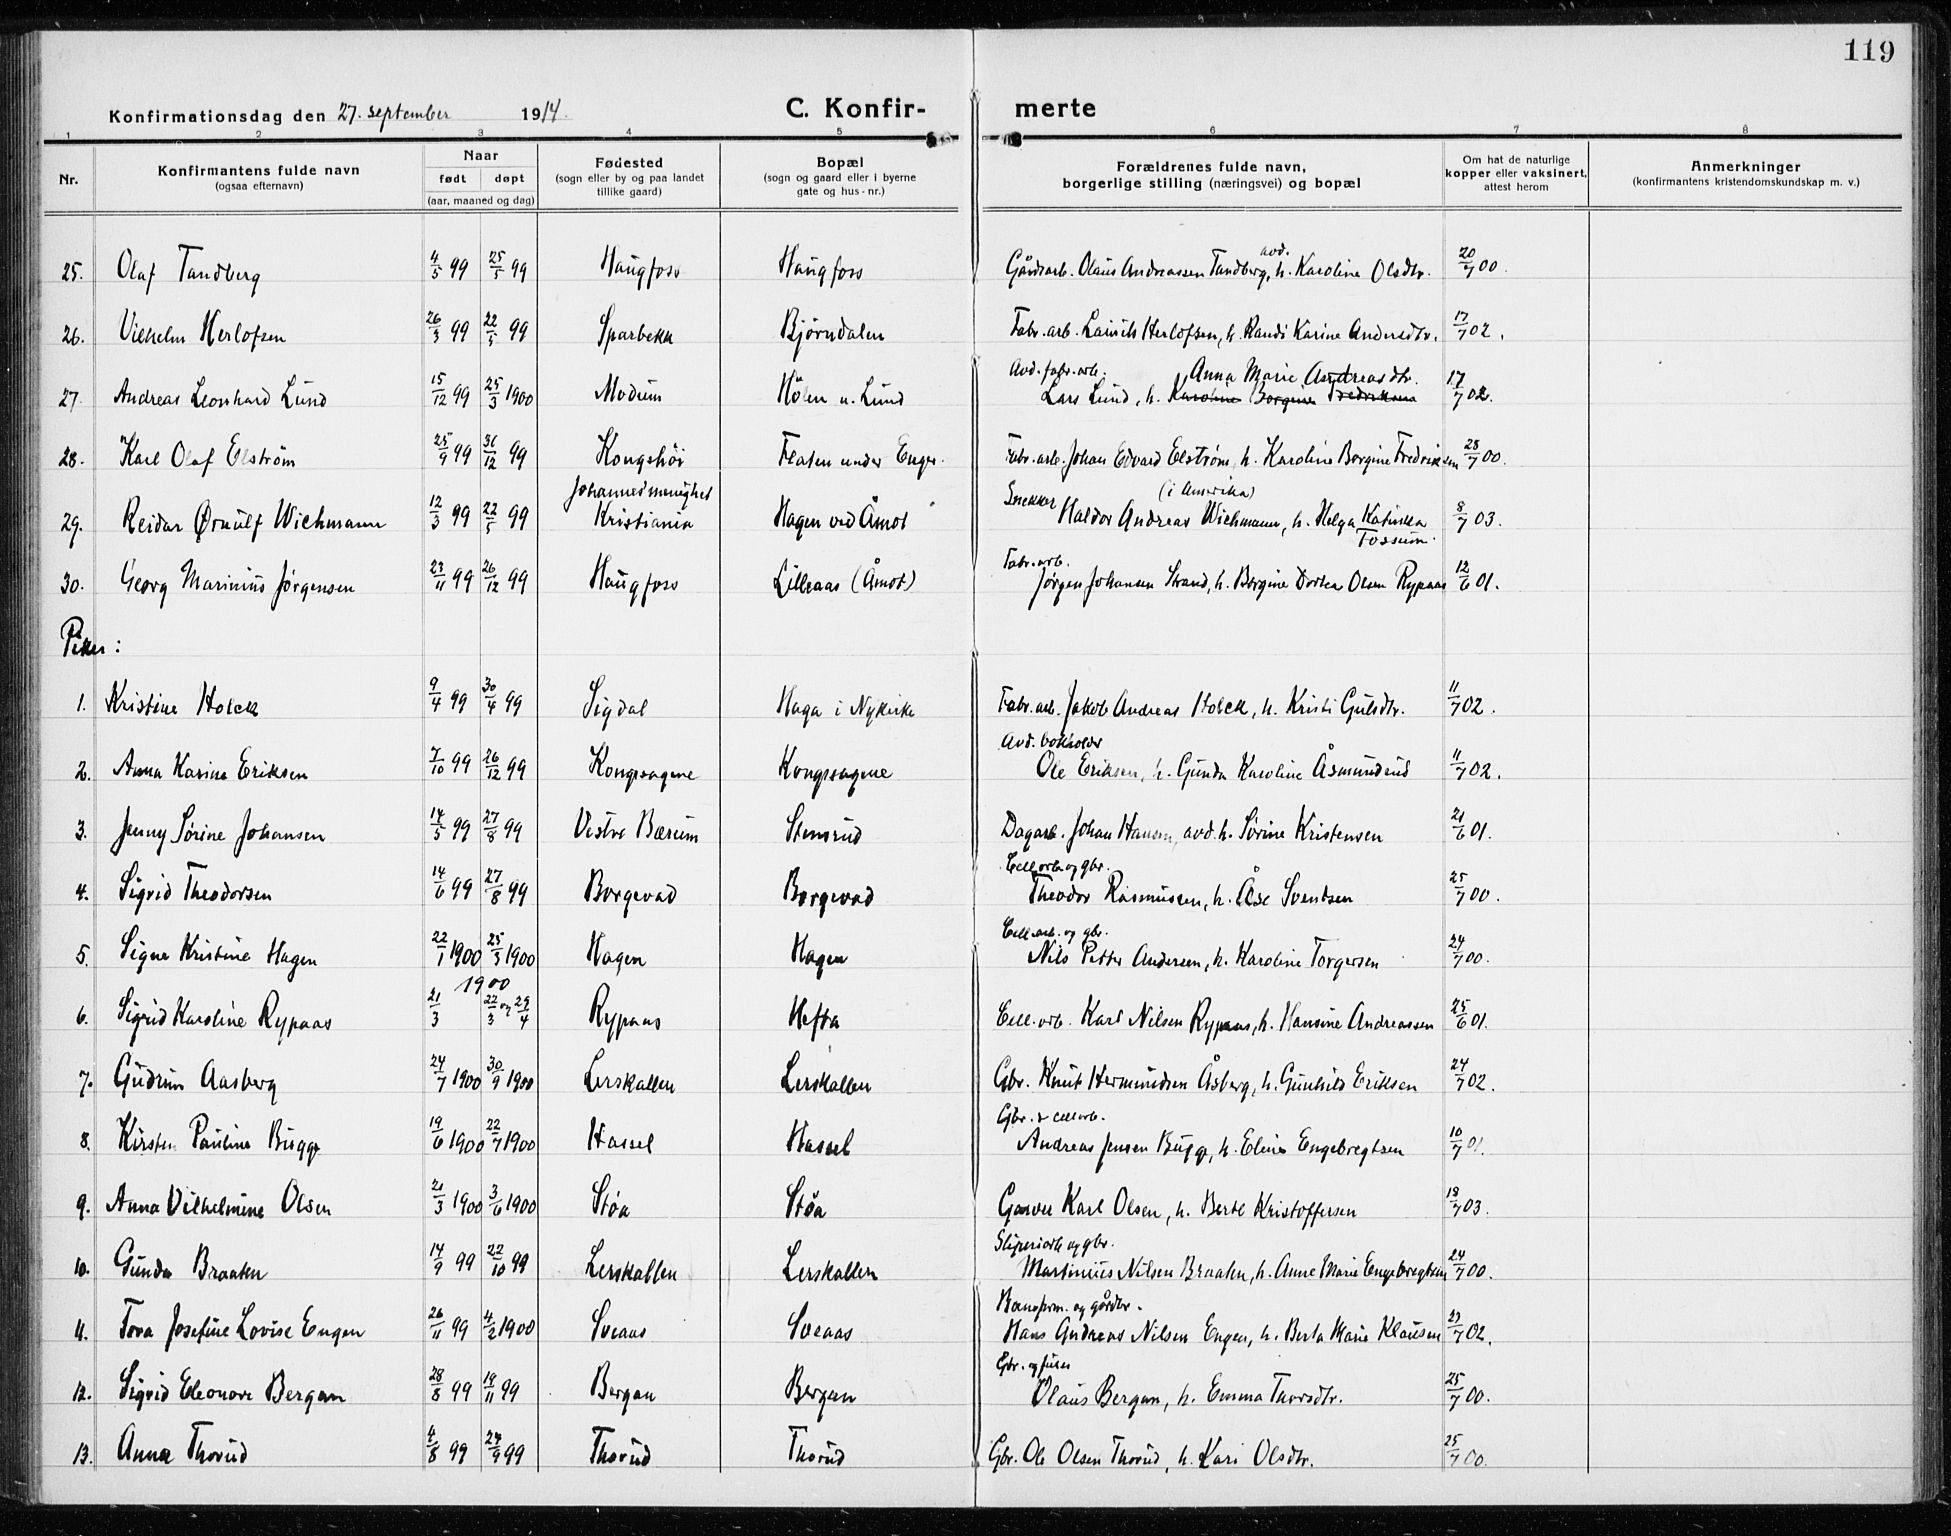 119
Konfirmationsdag den 27. september 1914. C. Konfir- merte
1 2 3 4 5 6 7 8
Nr. Konfirmantens fulde navn (ogsaa efternavn) Naar født døpt (aar, maaned og dag) Fødested (sogn eller by og paa landet tillike gaard) Bopæl (sogn og gaard eller i byerne gate og hus-nr.) Forældrenes fulde navn, borgerlige stilling (næringsvei) og bopæl Om hat de naturlige kopper eller vaksinert, attest herom Anmerkninger (konfirmantens kristendomskundskap m. v.)
25. Olaf Tandberg 4/5 99 25/5 99 Haugfoss Haugfoss Gårdsarb. Olaus Andreassen Tandberg, avd. h. Karoline Olsdtr. 20/7 00.
26. Vilhelm Herlofsen 26/3 99 22/5 99 Sparbekk Bjørndalen Fabr. arb. Herlofsen, h. Randi Karine Andersdtr. 17/7 02.
27. Andreas Leonhard Lund 15/12 99 25/3 1900 Modum Hølen u. Lund Avd. fabr. arb. Lars Lund, h. Karoline Borgine Fredriksen Anna Marie Andreasdtr. 17/7 02.
28. Karl Olaf Elstrøm 25/9 99 31/12 99 Kongshøi Flaten under Enger. Fabr. arb. Johan Edvard Elstrøm, h. Karoline Borgine Fredriksen 28/7 00.
29. Reidar Ørnulf Wichmann 12/3 99 22/5 99 Johannesmenighet Kristiania Hagen ved Åmot Snekker Haldor Andreas Wichmann, (i Amerika) h. Helga Katinka Fossum. 8/7 03.
30. Georg Marinius Jørgensen 23/11 99 26/12 99 Haugfoss Lilleaas (Åmot) Fabr. arb. Jørgen Johansen Strand, h. Borgine Dortea Olsen Rypaas 12/6 01.
Piker:
1. Kristine Holck 9/4 99 30/4 99 Sigdal Haga i Nykirke Fabr. arb. Jakob Andreas Holck, h. Kristi Gulsdtr. 11/7 02.
2. Anna Karine Eriksen 7/10 99 26/12 99 Kongssagene Kongssagene Avd. bokholder Ole Eriksen, h. Gunda Karoline Åsmundrud 11/7 02.
3. Jenny Sørine Johansen 14/5 99 27/8 99 Vestre Bærum Stensrud Dagarb. Johan Hansen, avd. h. Sørine Kristensen 21/6 01.
4. Sigrid Theodorsen 14/6 99 27/8 99 Borgevad Borgevad Cell. arb. og gbr. Theodor Rasmussen, h. Åse Svendsen 25/7 00.
5. Signe Kristine Hagen 22/1 1900 25/3 1900 Hagen Hagen Cell. arb. og gbr. Nils Petter Andersen, h. Karoline Torgersen 24/7 00.
6. Sigrid Karoline Rypaas 21/3 1900 22/3 og 29/4 Rypaas Hefta Cell. arb. Karl Nilsen Rypaas, h. Hansine Andreassen 25/6 01.
7. Gudrun Aasberg 24/7 1900 30/9 1900 Lerskallen Lerskallen Gbr. Knut Hermundsen Åsberg, h. Gunhild Eriksen 24/7 02.
8. Kirsten Pauline Bugge 19/6 1900 22/7 1900 Hassel Hassel Gbr. & cellarb. Andreas Jensen Bugge, h. Eline Engebregtsen 10/7 01.
9. Anna Vilhelmine Olsen 21/3 1900 3/6 1900 Støa Støa Garver Karl Olsen, h. Berte Kristoffersen 18/7 03.
10. Gunda Braaten 14/9 99 22/10 99 Lerskallen Lerskallen Sliperiarb og gbr. Martinius Nilsen Braaten, h. Anne Marie Engebregtsen 24/7 00.
11. Tora Josefine Lovise Engen 26/11 99 4/2 1900 Sveaas Sveaas Baneform. og gårdbr. Hans Andreas Nilsen Engen, h. Berta Marie Klausen 23/7 02.
12. Sigrid Eleonore Bergan 28/8 99 19/11 99 Bergan Bergan Gbr. og Olaus Bergan, h. Emma Thorsdtr. 25/7 00.
13. Anna Thorud 4/8 99 24/9 99 Thorud Thorud Gbr. Ole Olsen Thorud, h. Kari Olsdtr. 25/7 00.